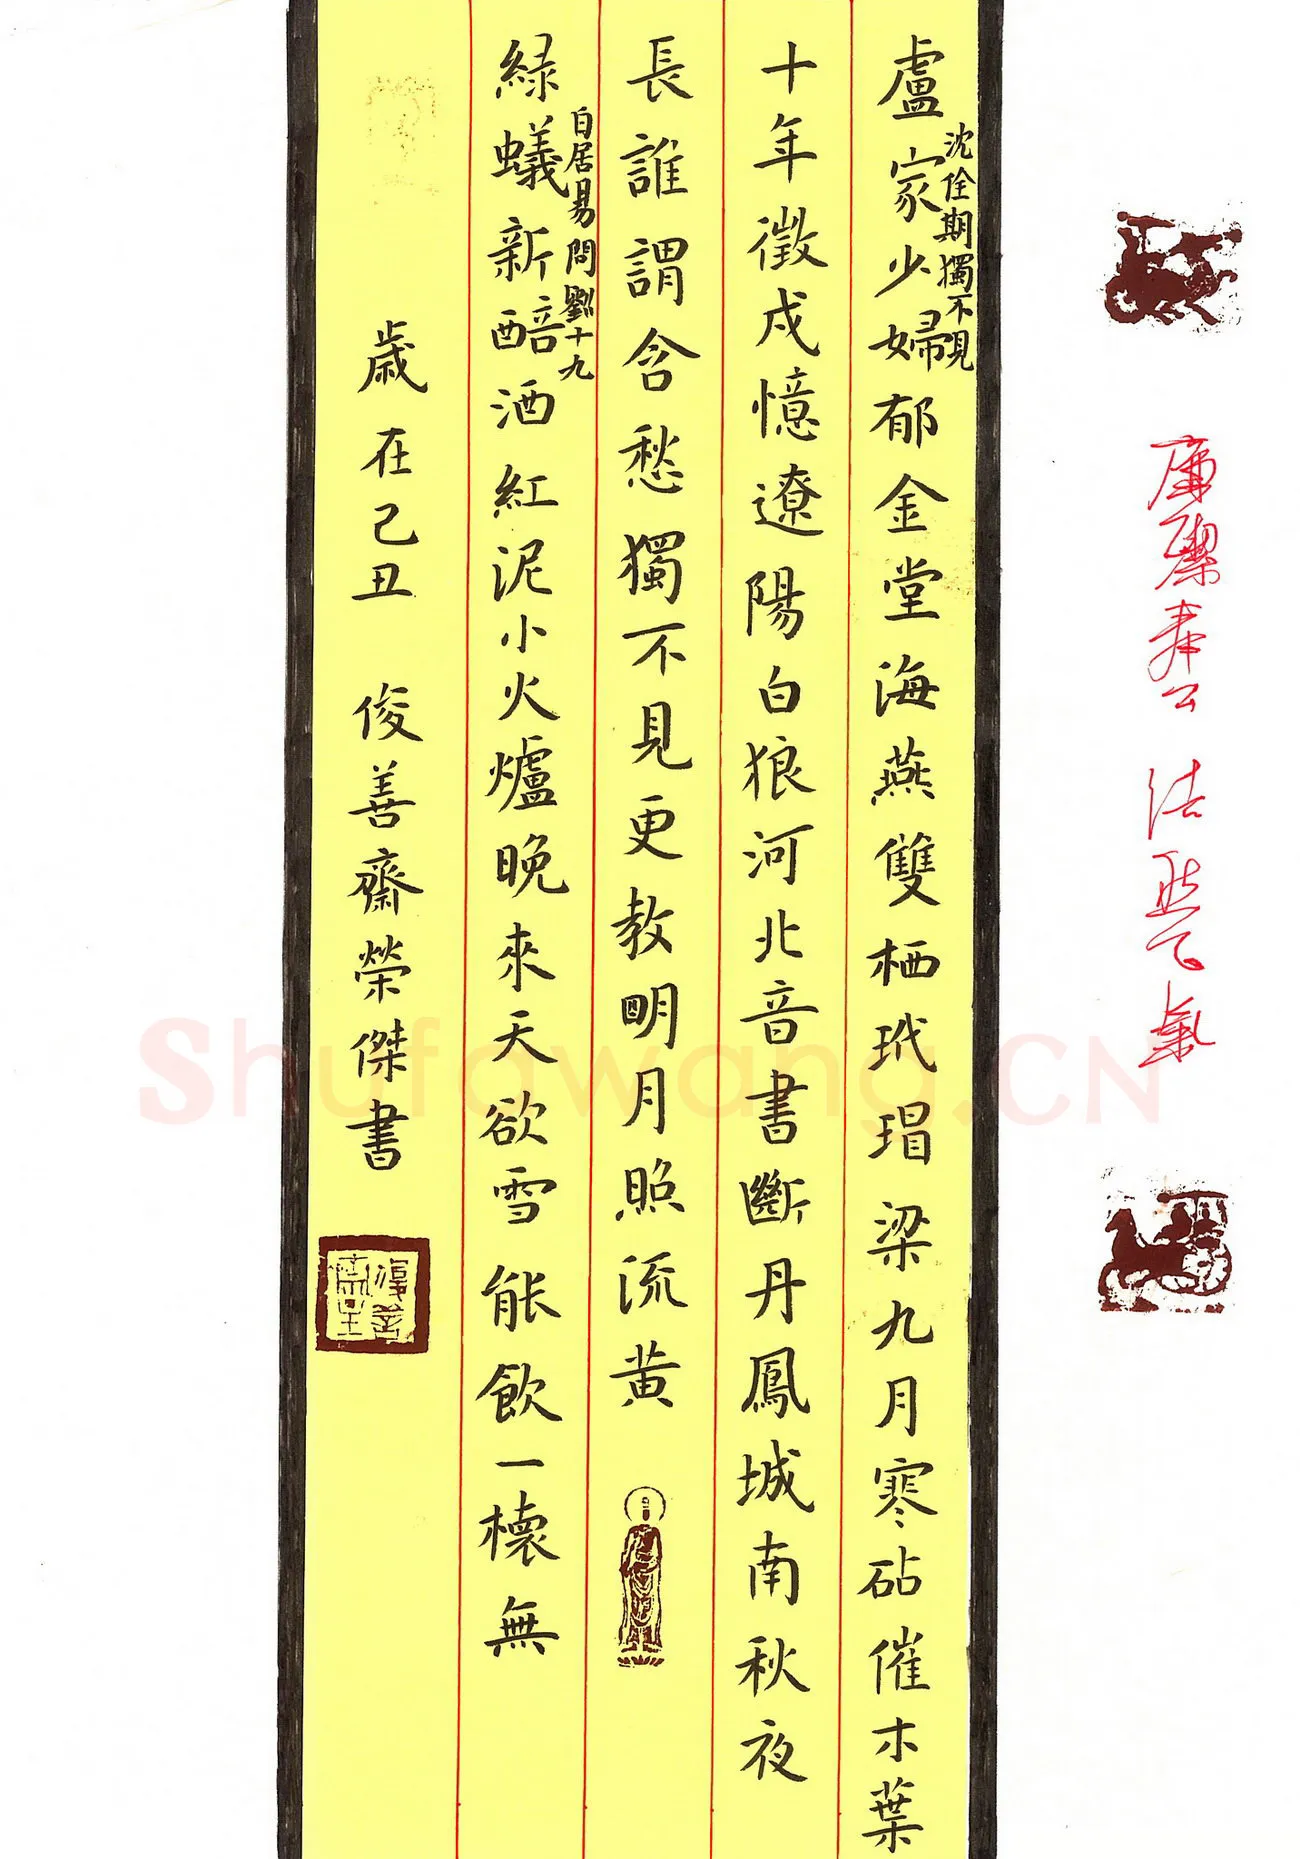 廉潔奉公 浩然正氣
沈佺期獨不見
盧家少婦郁金堂海燕雙栖玳瑁梁九月寒砧催木葉
十年徵戍憶遼陽白狼河北音書斷丹鳳城南秋夜
長誰謂含愁獨不見更教明月照流黄
白居易問劉十九
緑蟻新醅酒紅泥小火爐晚來天欲雪能飲一櫰無
歲在己丑 俊善齋榮傑書
Shufawang.CN